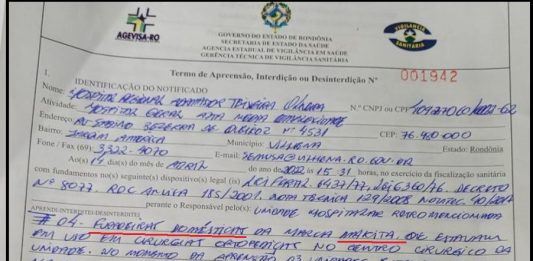 AGEVISA-RO
VIGILÂNCIA
SANITÁRIA
GOVERNO DO ESTADO DE RONDÔNIA
SECRETARIA DE ESTADO DA SAÚDE
AGÊNCIA ESTADUAL DE VIGILÂNCIA EM SAÚDE
GERÊNCIA TÉCNICA DE VIGILÂNCIA SANITÁRIA
Termo de Apreensão, Interdição ou Desinterdição Nº 001942
I. IDENTIFICAÇÃO DO NOTIFICADO
Nome: HOSPITAL REGIONAL TEIXEIRA Nº CNPJ ou CPF
Atividade: HOSPITAL GERAL ALTA MÉDIA COMPLEXIDADE
Endereço: BEZERRA DE Nº 4531 CEP: 76.980000
Bairro: JARDIM AMÉRICA Município: VILHENA Estado: Rondônia
Fone / Fax (69) 3322-9070 E-mail: SEMUSA@VILHENA.RO.GOV.BR
Ao(s) 19 dia(s) do mês de ABRIL do ano de 2022 às 15:31 horas, no exercício da fiscalização sanitária
com fundamentos no seguinte(s) dispositivo(s) legal(is) LEI 6437/77, LEI 6360/76, DECRETO
Nº 8077, RDC ANVISA 185/2001, NOTA TÉCNICA
perante o Responsável pelo(s): UNIDADE HOSPITALAR RETRO MENCIONADA
APREENDI/INTERDITEI/DESINTERDITEI
# 04 - FURADEIRAS DOMÉSTICAS DA MARCA MAKITA, QUE ESTAVAM
EM USO EM CIRURGIAS ORTOPÉDICAS NO CENTRO CIRÚRGICO DA
UNIDADE. NO MOMENTO DA APREENSÃO 03 UNIDADES